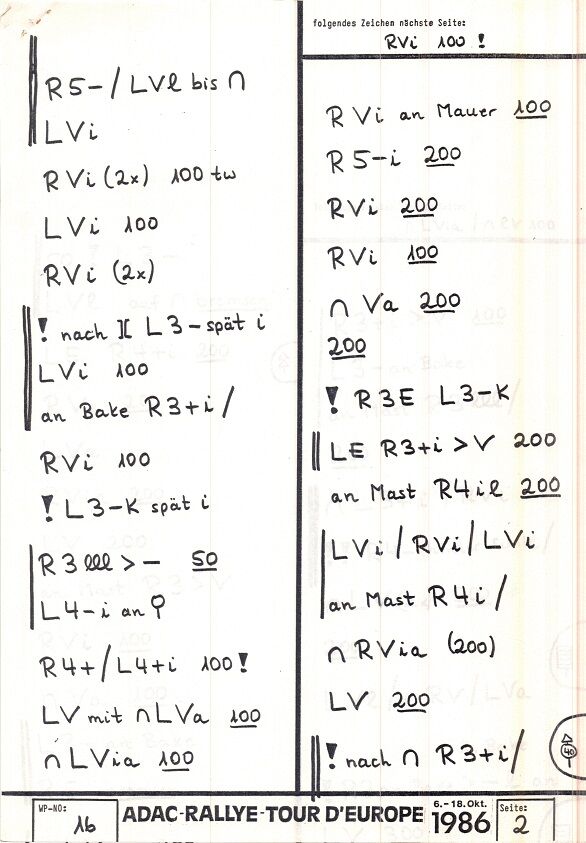 R5-/LVl bis ∩
LVi
RVi (2x) 100 tw
LVi 100
RVi (2x)
! nach ][ L3-spät i
LVi 100
an Bake R3+i/
RVi 100
! L3-K spät i
R3 lll > - 50
L4-i an
R4+/L4+i 100!
LV mit ∩ LVa 100
∩ LVia 100
folgendes Zeichen nächste Seite:
RVi 100 !
RVi an Mauer 100
R5-i 200
RVi 200
RVi 100
∩ Va 200
200
! R3E L3-K
LE R3+i > V 200
an Mast R4il 200
LVi/RVi/LVi
an Mast R4i/
∩ RVia (200)
LV 200
! nach ∩ R3+i/
40
WP-NO:
16
ADAC-RALLYE-TOUR D'EUROPE
6.-18.Okt.
1986
Seite:
2